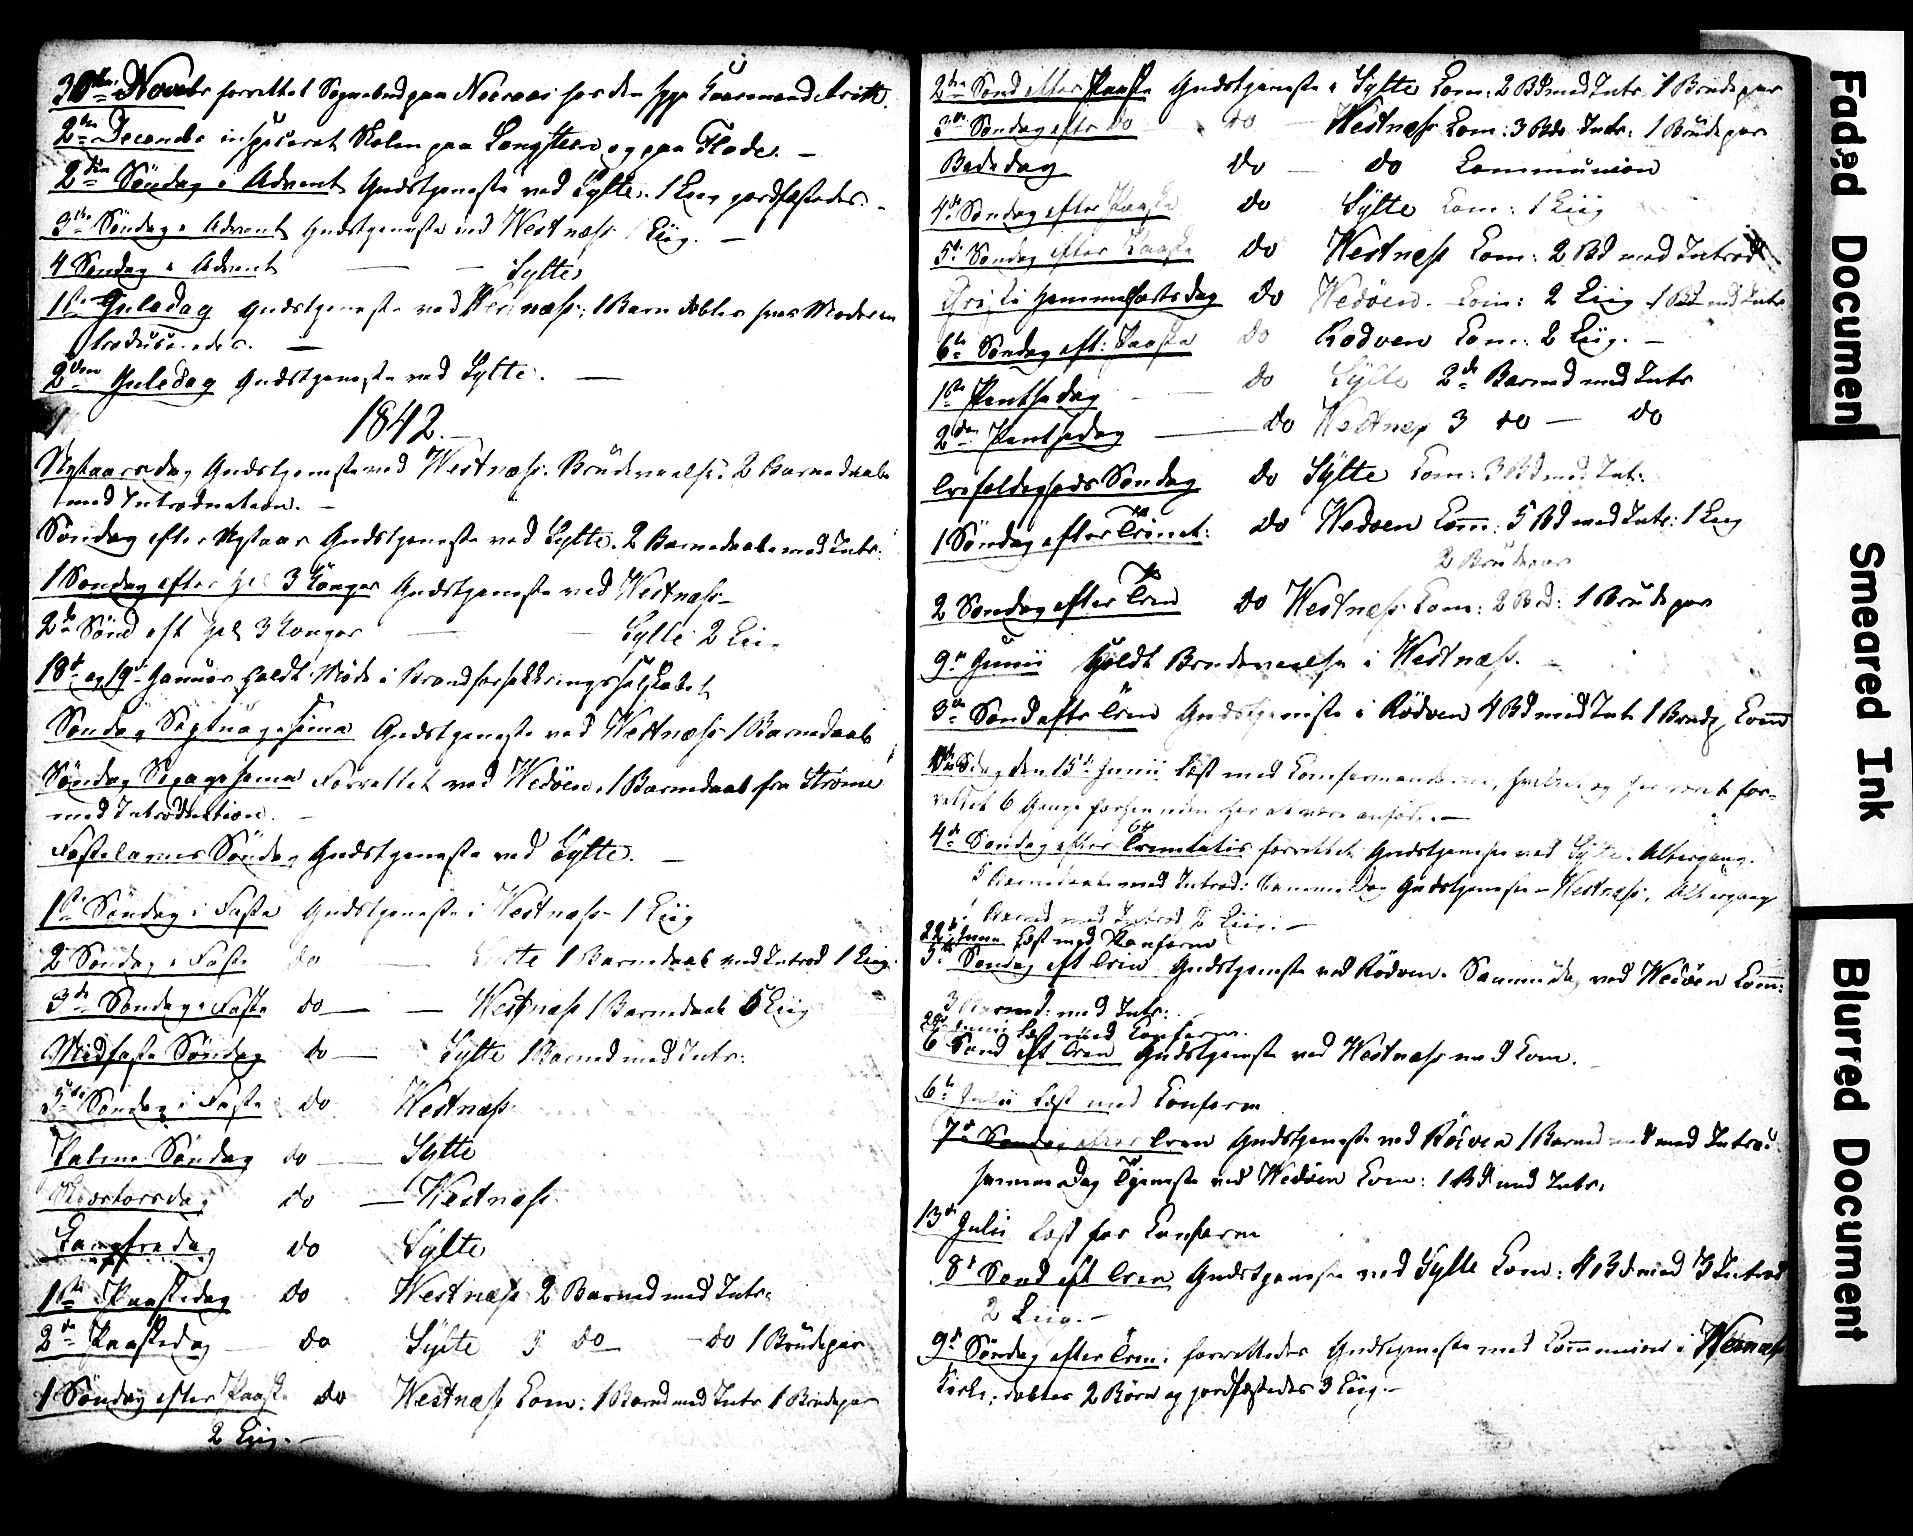 30te Novebr forrettet Sognebud paa Neeraas hos den syge
2den Decembr inspiceret Skolen paa Langsteen og paa Flode. —
2den Søndag i Advent Gudstjeneste ved Sylte. 1 Liig jordfæstedes. —
3die Søndag i Advent Gudstjeneste ved Westnæss 1 Liig. —
4 Søndag i Advent — — Sylte
1ste Juledag Gudstjeneste ved Westnæss; 1 Barn døbtes hvis Moder
introduceredes. —
2den Juledag Gudstjeneste ved Sylte. —
1842. —
Nytaarsdag Gudstjeneste ved Westnæss. Brudevielse. 2 Barnedaab
med Introduction. —
Søndag efter Nytaar Gudstjeneste ved Sylte. 2 Barnedaab med Intr:
1 Søndag efter Hel 3 Konger Gudstjeneste ved Westnæss —
2de Sønd eft Hel 3 Konger — — Sylte 2 Liig
18de og 19de Januar holdt Møde i Brandforsikkringsselskabet
Søndag Septuagesima Gudstjeneste ved Westnæss 1 Barnedaab
Søndag Sexagesima Forrettet ved Wedøen. 1 Barnedaab fra Strømme
med Introduktion. —
Fastelavns Søndag Gudstjeneste ved Sylte. —
1ste Søndag i Faste Gudstjeneste i Westnæss — 1 Liig
2 Søndag i Faste do — Sylte 1 Barnedaab med Introd 1 Liig.
3de Søndag i Faste do — — Westnæss 1 Barnedaab 5 Liig
Midfaste Søndag do — Sylte 1 Barned med Intr:
5te Søndag i Faste do Westnæss
Palme Søndag do — Sylte
Skjærtorsdag do — Westnæss
Langfredag do Sylte
1ste Paaskedag do Westnæss 2 Barned med Intr:
2de Paaskedag do Sylte 5 do — — do 1 Brudepar
1 Søndag efter Paaske do Westnæss Com: 1 Barned med Intr 1 Brudepar
2 Liig. —
2den Sønd efter Paaske Gudstjeneste i Sylte Com: 2 Bd med Intr 1 Brudepar
3die Søndag eftr do do — Westnæss Com: 3 Bd Intr: 1 Brudepar
Bededag do — do Communion
4de Søndag efter Paaske do Sylte Com: 1 Liig
5te Søndag efter Paaske do Westnæss Com: 2 Bd med Introd
Christi Hemmelfartsdag do Wedøen. Com: 2 Liig 1 Bd med Intr
6te Søndag eft: Paaske do Rodven Com: 2 Liig. —
1ste Pentsedag do Sylte 2de Barned med Intr
2den Pentsedag — do Westnæss 3 do — do
Trefoldigheds Søndag do Sylte Com: 3 Bd med Int:
1 Søndag efter Trinit: do Wedøen Com: 5 Bd med Intr: 1 Liig
2 Brudepar
2 Søndag efter Trin do Westnæss Com: 2 Bd: 1 Brudepar
9de Junii Holdt Brudevielse i Westnæss. —
3die Sønd eftr Trin Gudstjeneste i Rødven 4 Bd med Int 1 Brudp Com
den 15de Junii Læst med Confirmanderne, hvilket og har været for-
rettet 6 Gange forhen uden her at være anført. —
4de Søndag efter Trinitatis forrettet Gudstjeneste ved Sylte. Altergang.
5 Barnedaab med Introd: Samme Dag Gudstjeneste i Westnæss. Altergang
1 Barned med Introd 2 Liig. —
22de Junii Læst med Konfirm
5te Søndag eft Trin Gudstjeneste ved Rødven. Samme Dag ved Wedøen Com:
3 Barned: med Intr:
Junii Læst med Confirm.
6 Sønd eft Trin Gudstjeneste ved Westnæss med Com.
6te Julii Læst med Confirm
7de Søndag efter Trin Gudstjeneste ved Rødven 1 Barned med Introd:
samme Dag Tjeneste ved Wedøen Com: 1 Bd med Intr.
13de Julii Læst for Confirm
8de Sønd eft Trin Gudstjeneste ved Sylte Com: 4 Bd med 3 Introd
2 Liig. —
9de Søndag efter Trin: forrettedes Gudstjeneste med Communion i Westnæss
Kirke, døbtes 2 Børn og jordfæstedes 3 Liig. —
Faded Document
Smeared Ink
Blurred Document